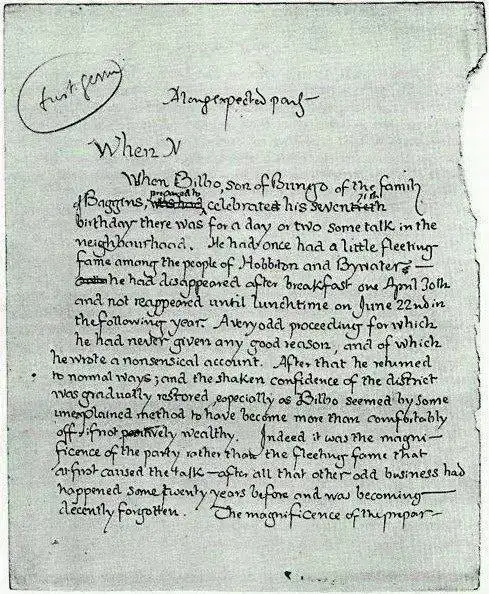 first germ
A long expected party
When N
When Bilbo, son of Bungo of the family
of Baggins, was had prepared to celebrate his seventieth 71th
birthday there was for a day or two some talk in the
neighbourhood. He had once had a little fleeting
fame among the people of Hobbiton and Bywater —
he had disappeared after breakfast one April 30th
and not reappeared until lunchtime on June 22nd in
the following year. A very odd proceeding for which
he had never given any good reason, and of which
he wrote a nonsensical account. After that he returned
to normal ways; and the shaken confidence of the district
was gradually restored, especially as Bilbo seemed by some
unexplained method to have become more than comfortably
off, if not positively wealthy. Indeed it was the magni-
ficence of the party rather than the fleeting fame that
at first caused the talk — after all that other odd business had
happened some twenty years before and was becoming
decently forgotten. The magnificence of the prepar-